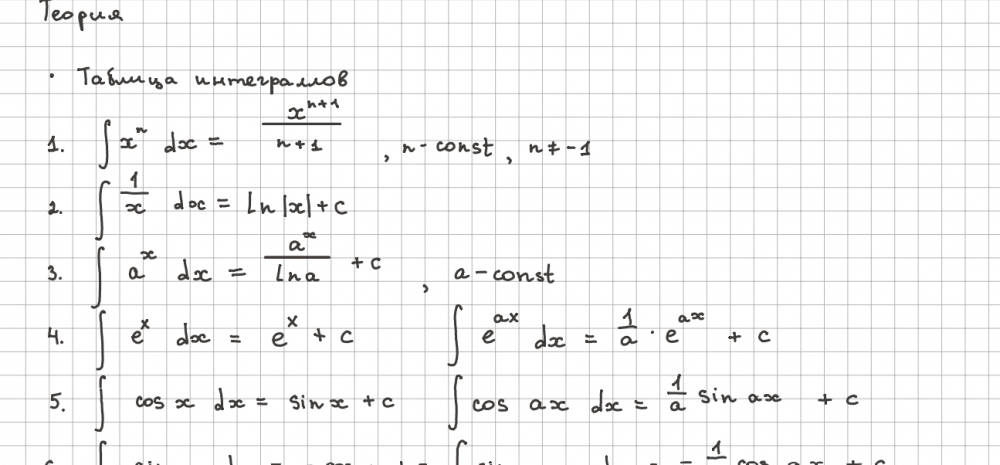 Теория
· Таблица интегралов
1. ∫ xⁿ dx = xⁿ⁺¹/(n+1) , n - const , n ≠ -1
2. ∫ 1/x dx = ln|x| + c
3. ∫ aˣ dx = aˣ/(ln a) + c , a - const
4. ∫ eˣ dx = eˣ + c ∫ e^(ax) dx = 1/a · e^(ax) + c
5. ∫ cos x dx = sin x + c ∫ cos ax dx = 1/a sin ax + c